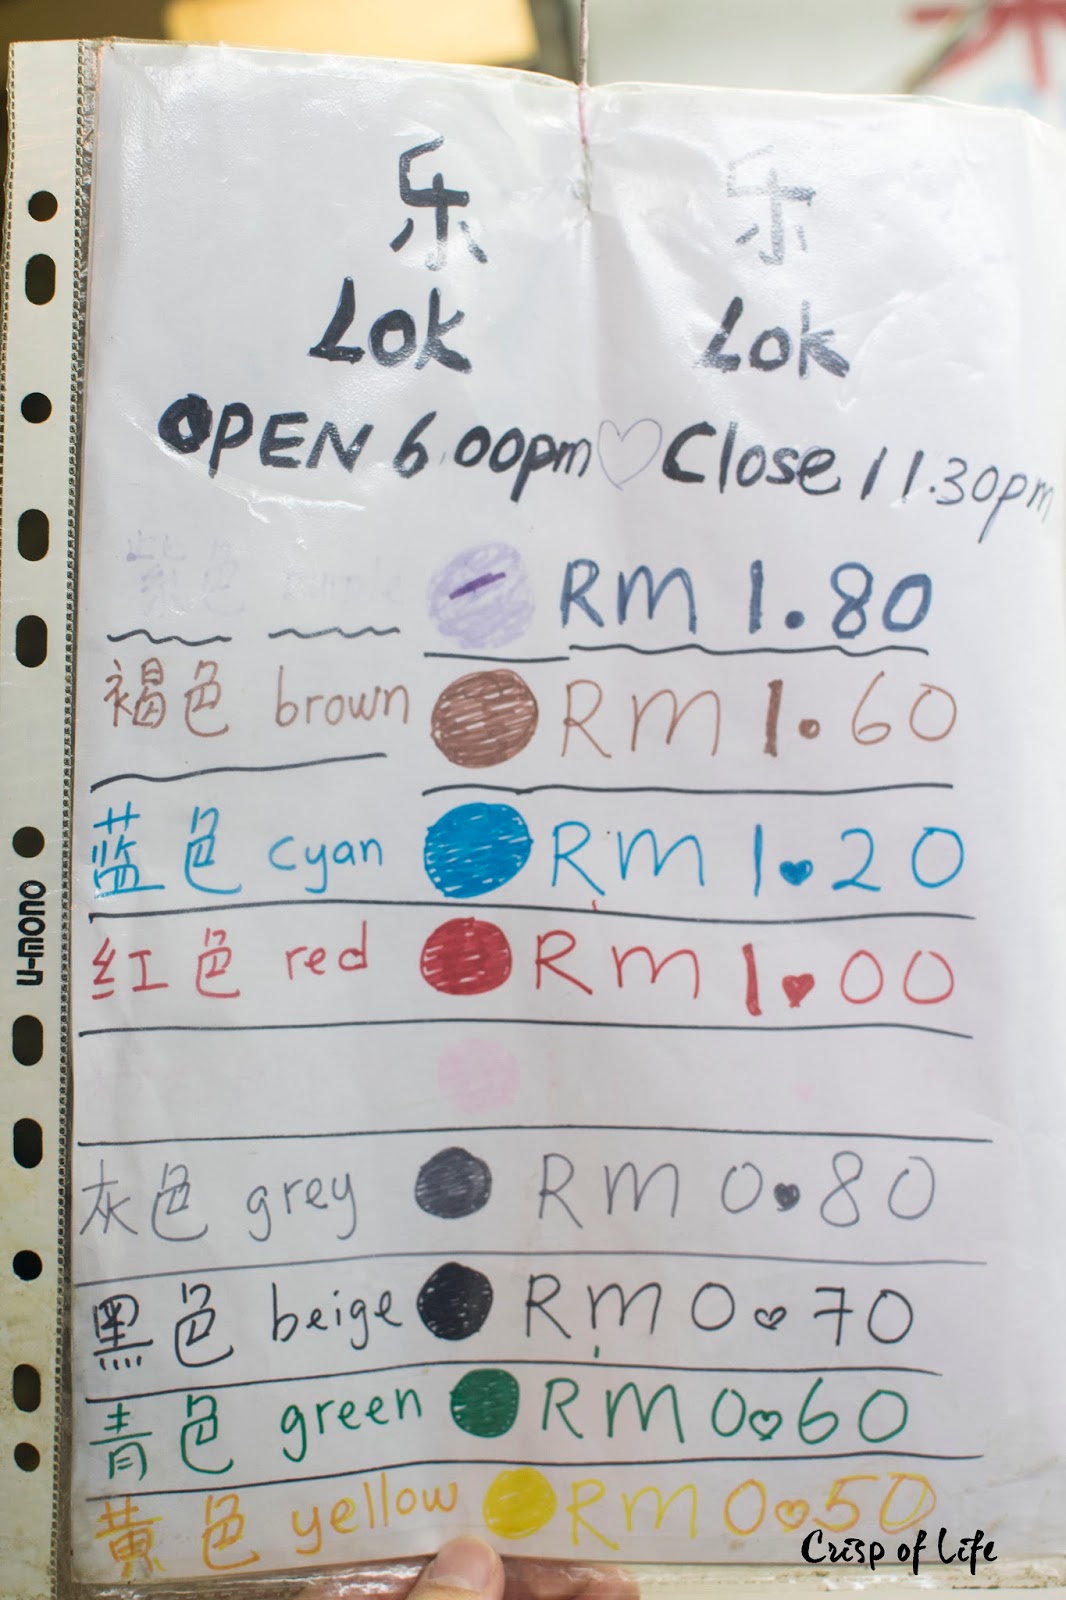 乐 乐
Lok Lok
OPEN 6.00pm Close 11.30pm
紫色 purple RM 1.80
褐色 brown RM 1.60
蓝色 cyan RM 1.20
红色 red RM 1.00
灰色 grey RM 0.80
黑色 beige RM 0.70
青色 green RM 0.60
黄色 yellow RM 0.50
U-MONO
Crisp of Life